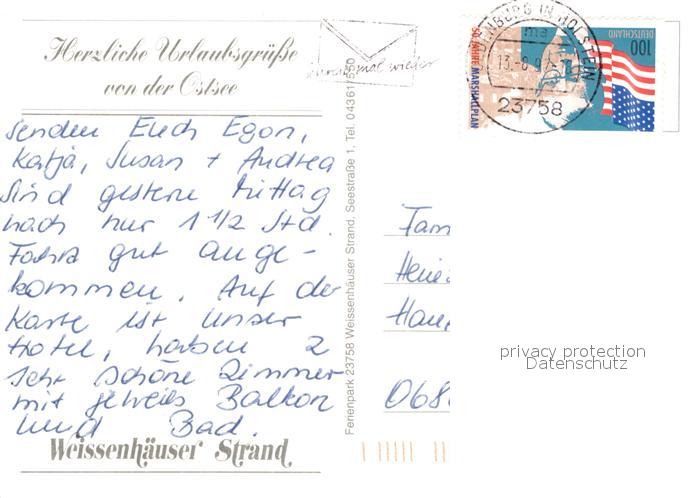 Herzliche Urlaubsgrüße
von der Ostsee
senden Euch Egon,
Katja, Susan + Andrea
Sind gestern Mittag
nach nur 1 1/2 Std.
Fahrt gut ange-
kommen. Auf der
Karte ist unser
Hotel, haben 2
sehr schöne Zimmer
mit jeweils Balkon
und Bad.
Weissenhäuser Strand
mal wieder
Ferienpark 23758 Weissenhäuser Strand, Seestraße 1, Tel. 04361
BURG IN HOLSTEIN
23758
50 JAHRE MARSHALLPLAN
DEUTSCHLAND
100
Fam
Hau
068
privacy protection
Datenschutz